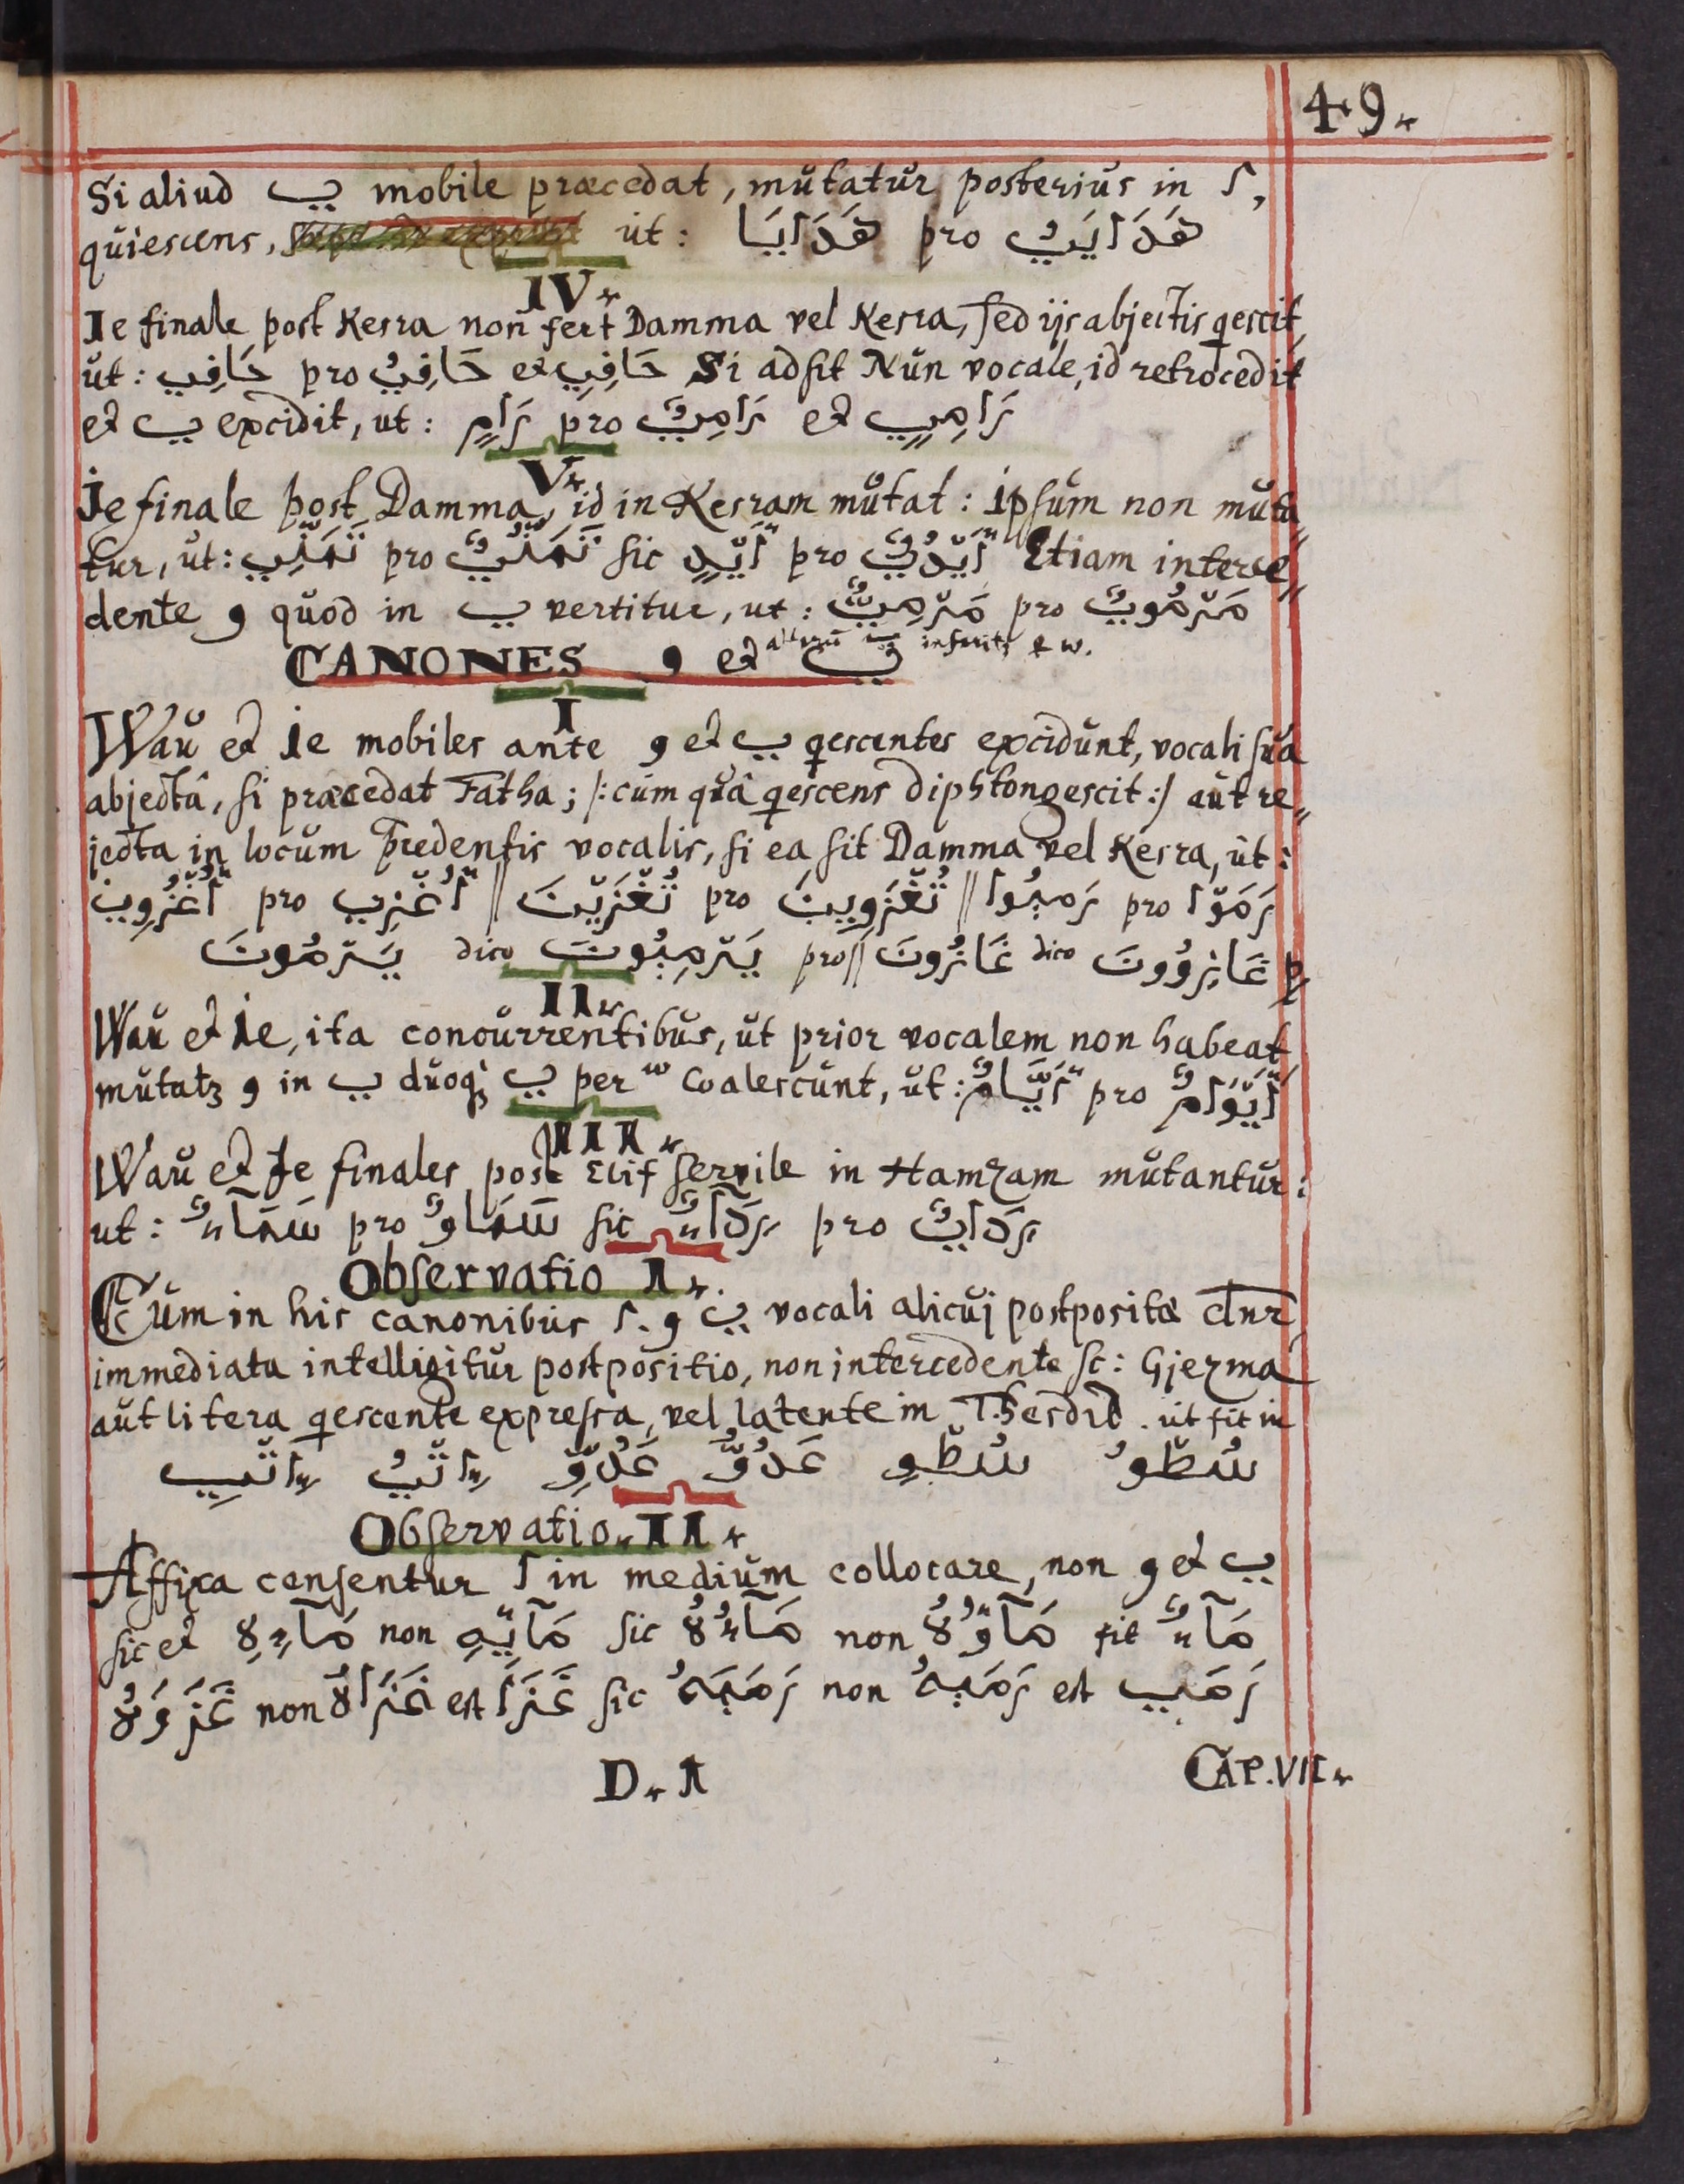 49.
Si aliud ي mobile præcedat, mutatur posterius in ا,
quiescens, ut: هَدَايَا pro هَدَايَيُ
IV.
Ie finale post Kesra non fert Damma vel Kesra, sed ijs abjectis qescit,
ut: حَافِي pro حَافِيُ et حَافِيِ Si adsit Nun vocale, id retrocedit
et ي excidit, ut: رَامٍ pro رَامِيٌ et رَامِيٍ
V.
Ie finale post Damma, id in Kesram mutat: Ipsum non muta„
tur, ut: تَمَنِّي pro تَمَنُّيٌ sic أَيْدٍ pro أَيْدُيٌ Etiam interce„
dente و quod in ي vertitur, ut: مَرْمِيٌّ pro مَرْمُويٌ
CANONES و et ي
I
Wau et Ie mobiles ante و et ي qescentes excidunt, vocali sua
abjectâ, si præcedat Fatha; /: cum quâ qescens diphtongescit :/ aut re„
jecta in locum præcedentis vocalis, si ea sit Damma vel Kesra, ut:
رَمَوْا pro رَمَيُوا // تُغْزَيْنَ pro تُغْزَوِينَ // أُغْزِي pro أُغْزُوِي
غَازِوُونَ dico غَازُونَ // pro يَرْمِيُونَ dico يَرْمُونَ
II.
Wau et Ie, ita concurrentibus, ut prior vocalem non habeat
mutatꝫ و in ي duoqꝫ ي per ّ coalescunt, ut: أَيَّامٌ pro أَيْوَامٌ
III.
Wau et Ie finales post Elif servile in Hamzam mutantur:
ut: سَمَآءٌ pro سَمَاوٌ sic رِدَآءٌ pro رِدَايٌ
Observatio I.
Cum in his canonibus ا. و ي vocali alicuj postpositæ
immediata intelligitur postpositio, non intercedente sc: Gjezma
aut litera qescente expressa, vel latente in Tesdid. ut fit in
عَدُوُّ عَدُوِّ
Observatio II.
Affixa censentur ا in medium collocare, non و et ي
مَآءٌ fit مَآؤُهُ non مَآءُهُ sic مَآئِهِ non مَآءِهِ sic et
رَمَي est رَمَيهُ non رَمَيَهُ sic غَزَا est غَزَاهُ non غَزَوَهُ
D. I
CAP. VII.